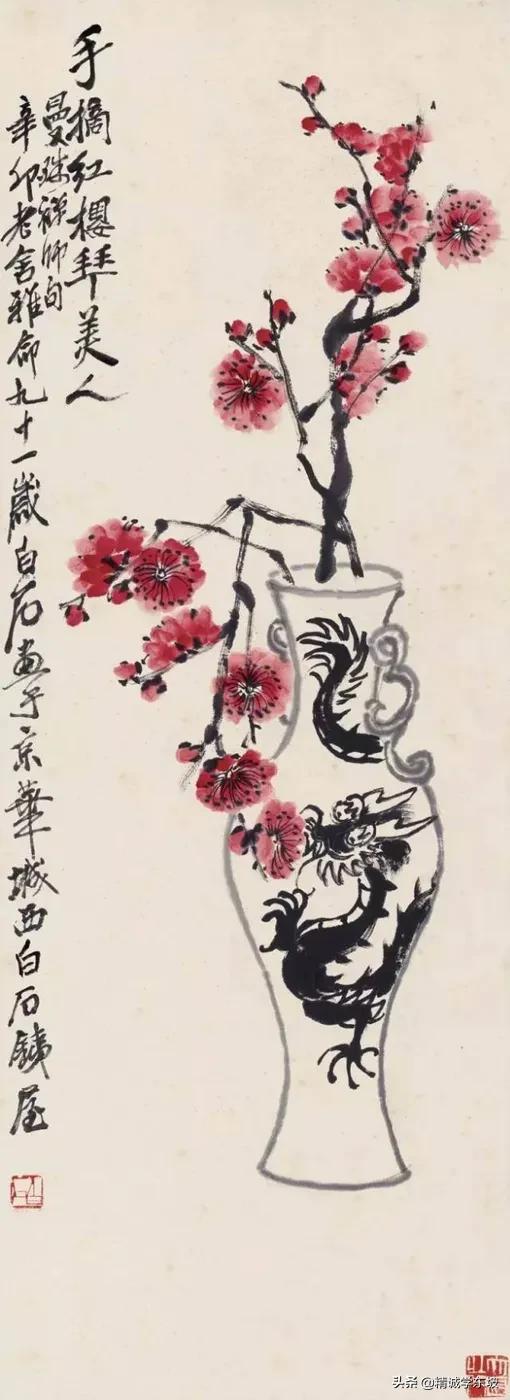 手摘红櫻拜美人
曼殊禅师句
辛卯老舍雅命九十一歲白石画于京華城西白石鐵屋
头条 @精诚学东坡